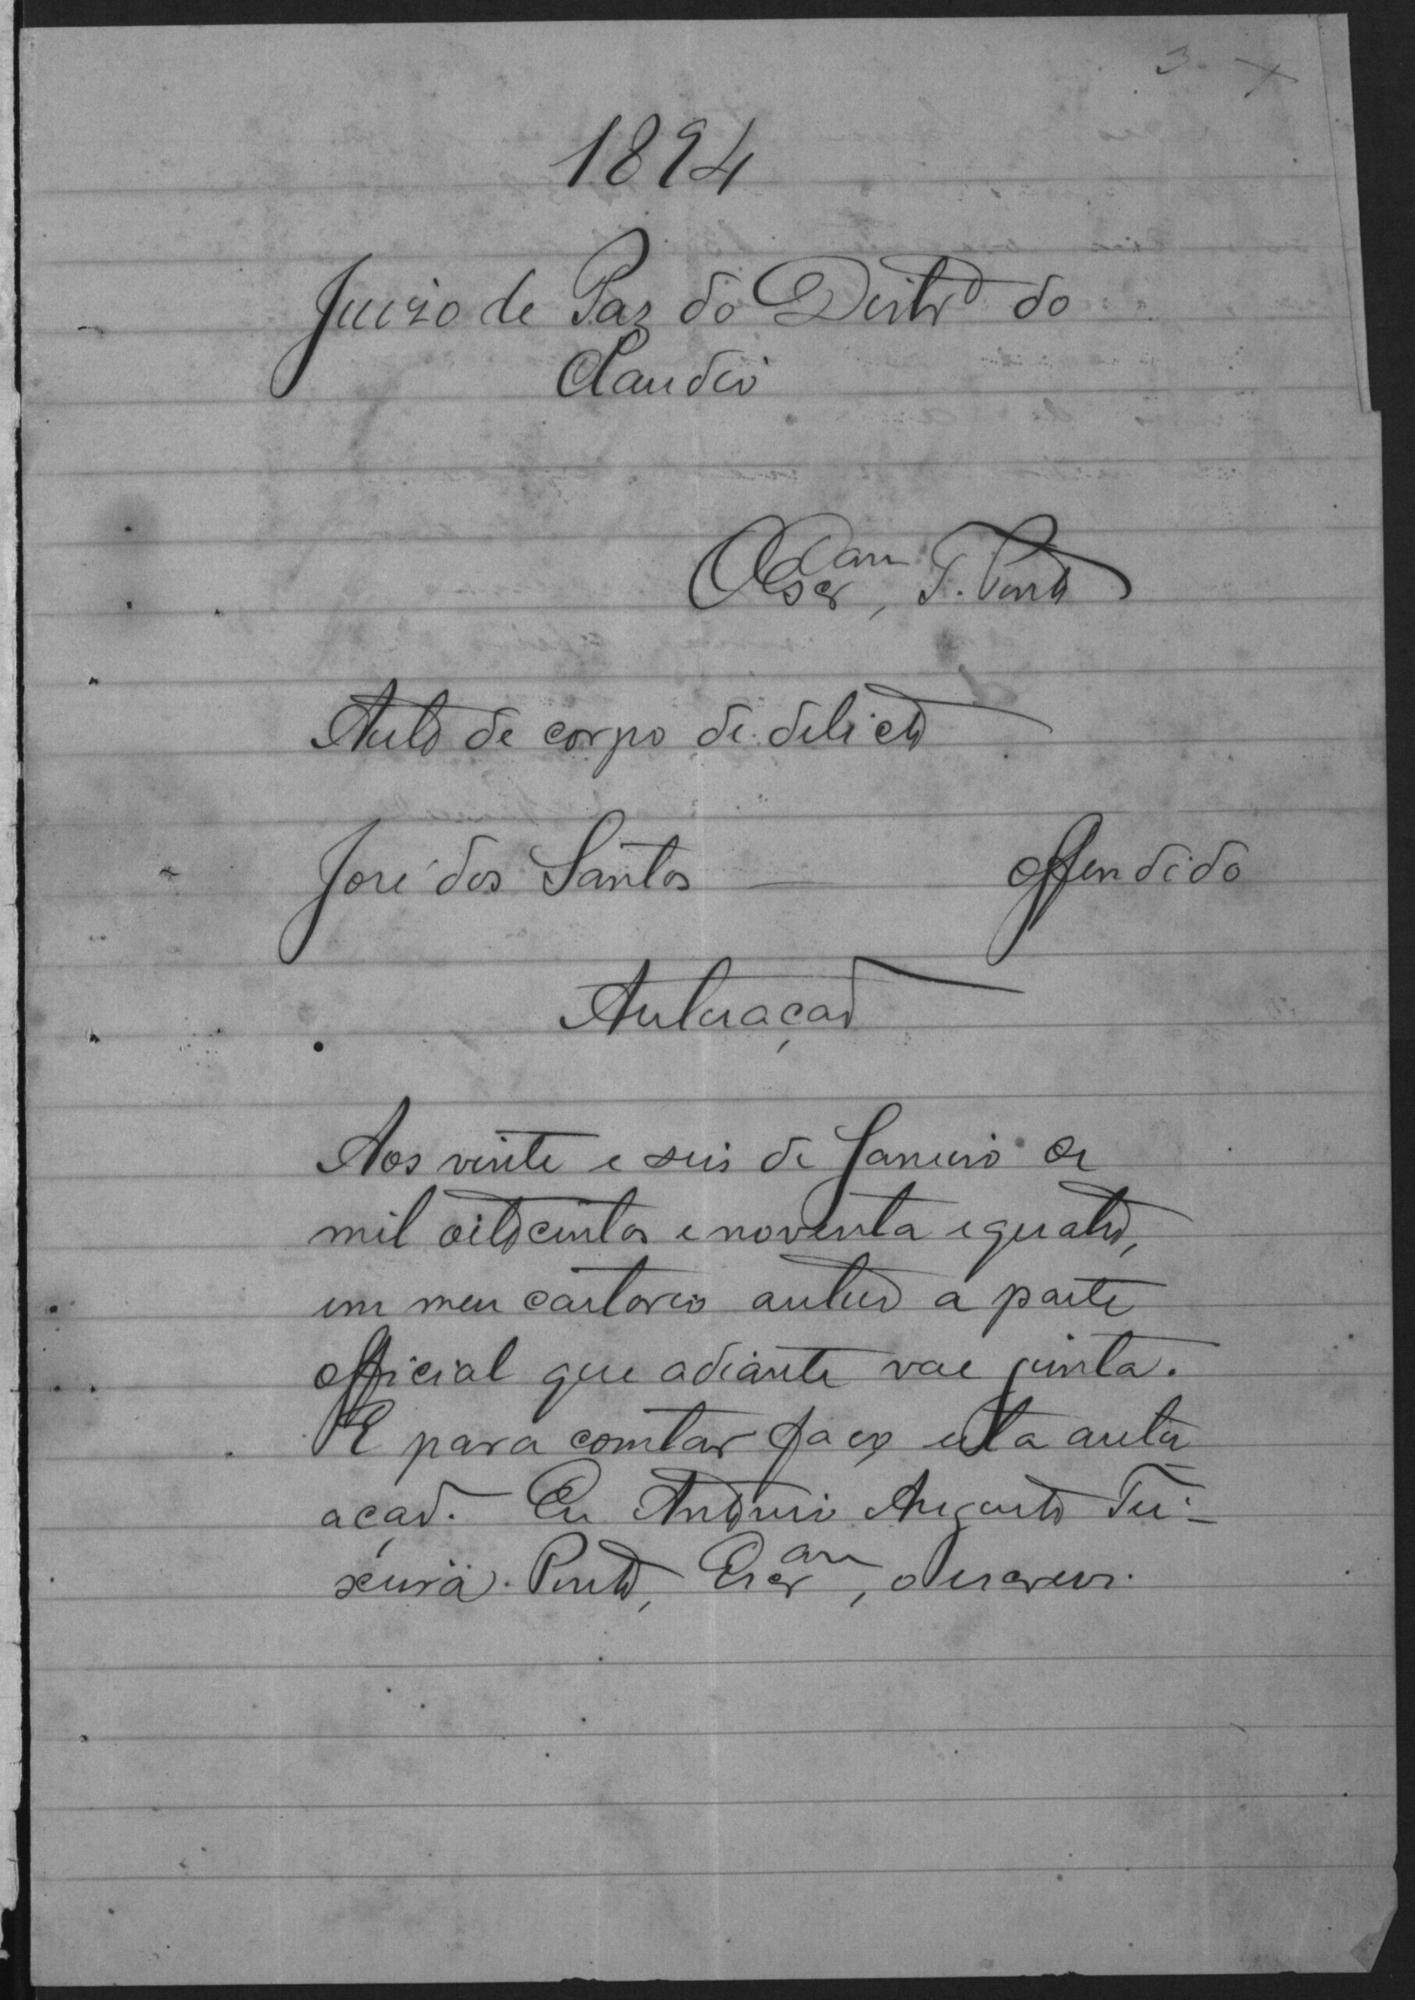 3.
1894
Juizo de Paz do Distrº do
Claudio
O Escram, T. Pinto
Auto de corpo de delicto
José dos Santos — Offendido
Autuação
Aos vinte e seis de Janeiro de
mil oitocentos e noventa e quatro,
em meu cartorio autuo a parte
official que adiante vae junta.
E para constar faço esta autu
ação. Eu Antonio Augusto Tei-
xeira Pinto, Escram, o escrevi.